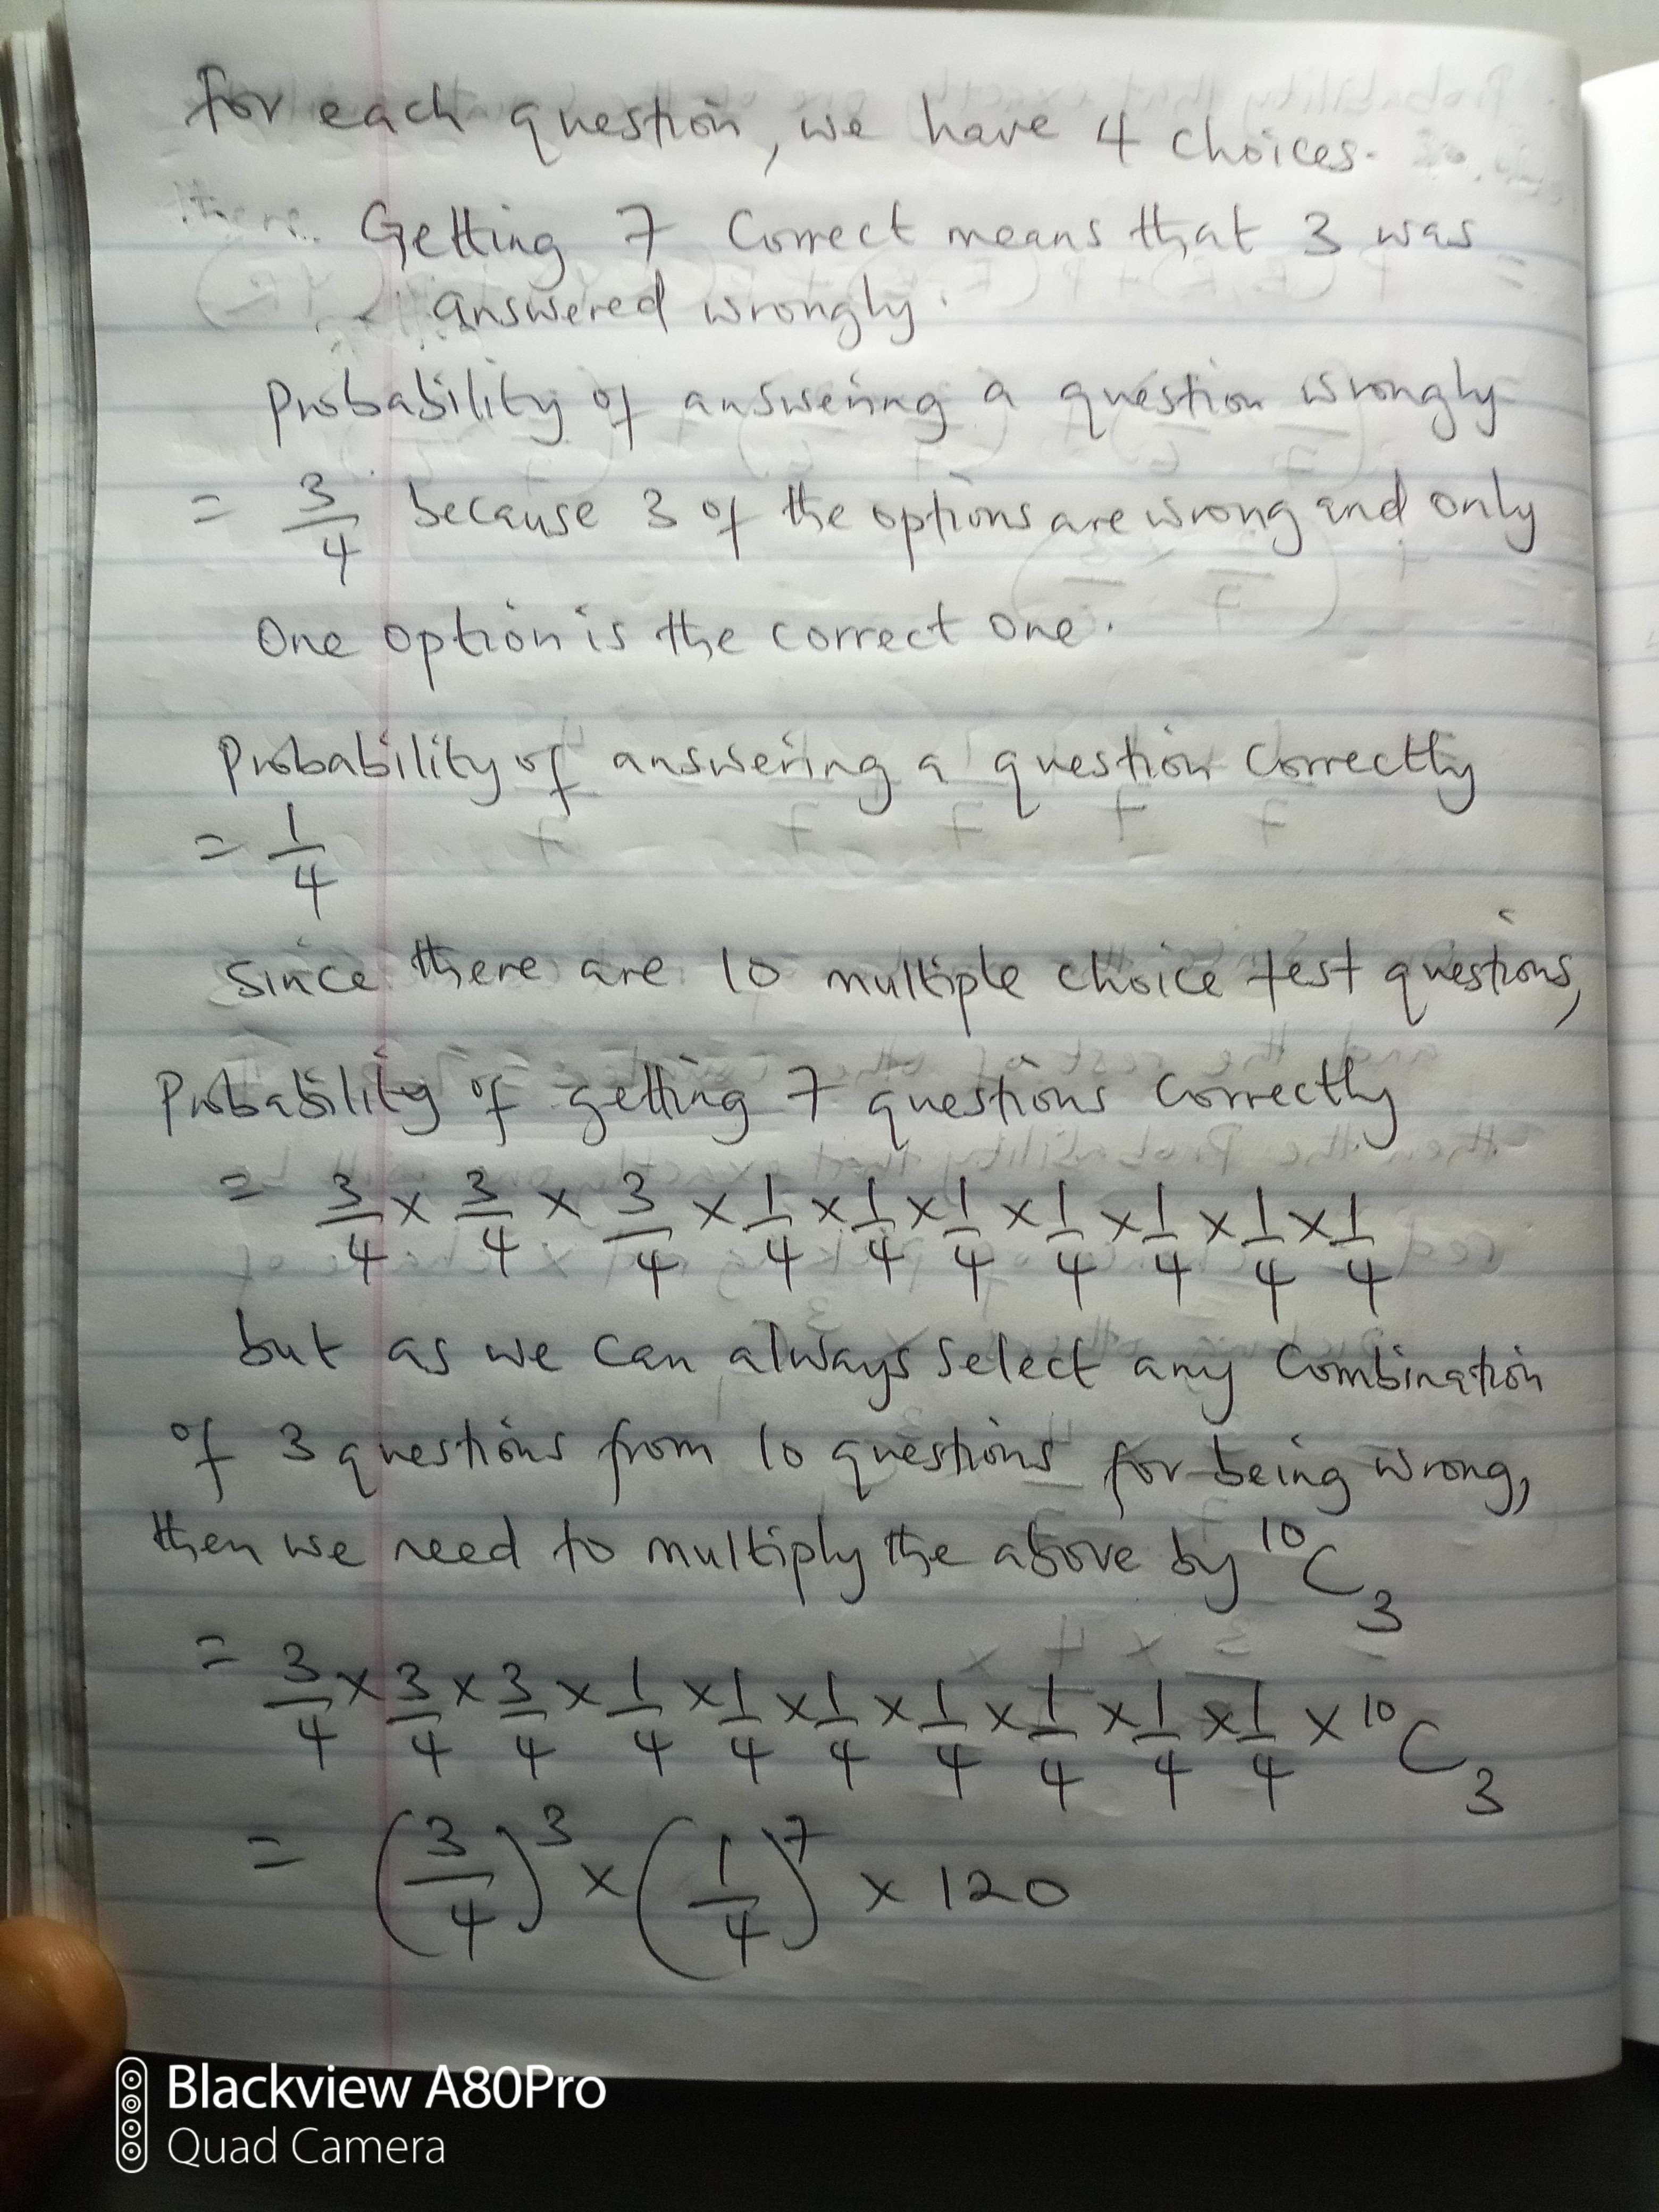 For each question, we have 4 choices.
Getting 7 Correct means that 3 was
answered wrongly.
Probability of answering a question wrongly
= 3/4 because 3 of the options are wrong and only
One option is the correct one.
Probability of answering a question Correctly
= 1/4
Since there are 10 multiple choice test questions,
Probability of getting 7 questions Correctly
= 3/4 × 3/4 × 3/4 × 1/4 × 1/4 × 1/4 × 1/4 × 1/4 × 1/4 × 1/4
but as we can always select any Combination
of 3 questions from 10 questions for being wrong,
then we need to multiply the above by ¹⁰C₃
= 3/4 × 3/4 × 3/4 × 1/4 × 1/4 × 1/4 × 1/4 × 1/4 × 1/4 × 1/4 × ¹⁰C₃
= (3/4)³ × (1/4)⁷ × 120
Blackview A80Pro
Quad Camera